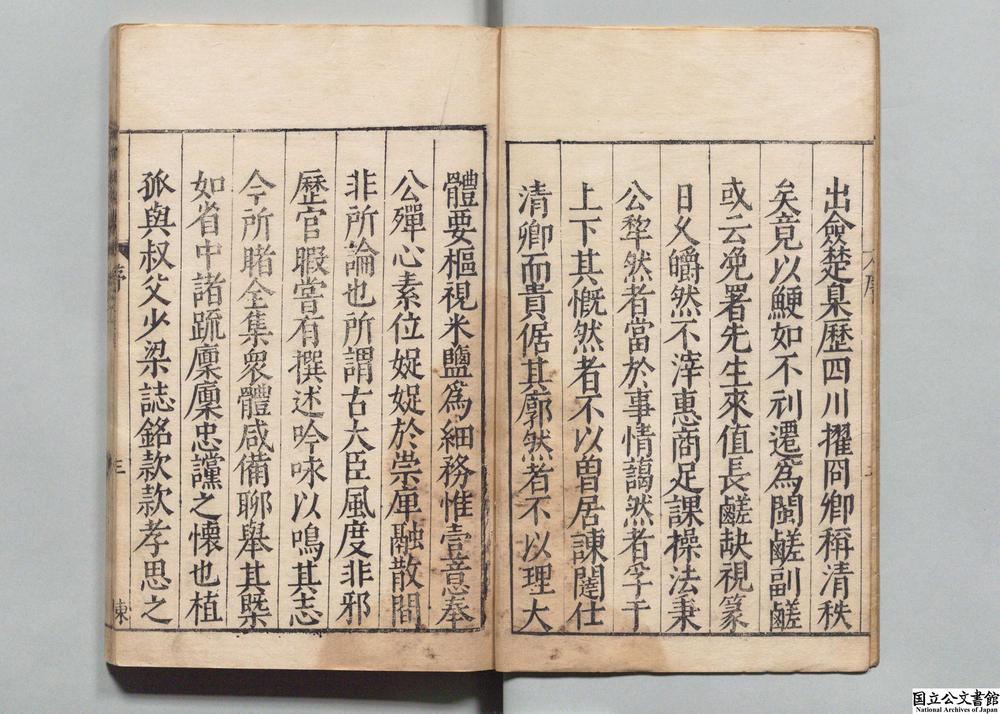 出僉楚臬歷四川擢冏卿稱清秩
矣竟以鯁如不利遷爲閩鹺副鹺
或云浼署先生來值長鹺缺視篆
日乂皭然不滓惠商足課操法秉
公犂然者當於事情藹然者孚于
上下其慨然者不以曾居諫闥仕
清卿而貴倨其廓然者不以理大
體要樞視米鹽爲細務惟壹意奉
公殫心素位娖娖於崇庳融散間
非所論也所謂古大臣風度非邪
歷官暇嘗有撰述吟咏以鳴其志
今所睹全集衆體咸備聊舉其槩
如省中諸疏廩廩忠讜之懷也植
孤與叔父少梁誌銘款款孝思之
序
三
東
国立公文書館
National Archives of Japan